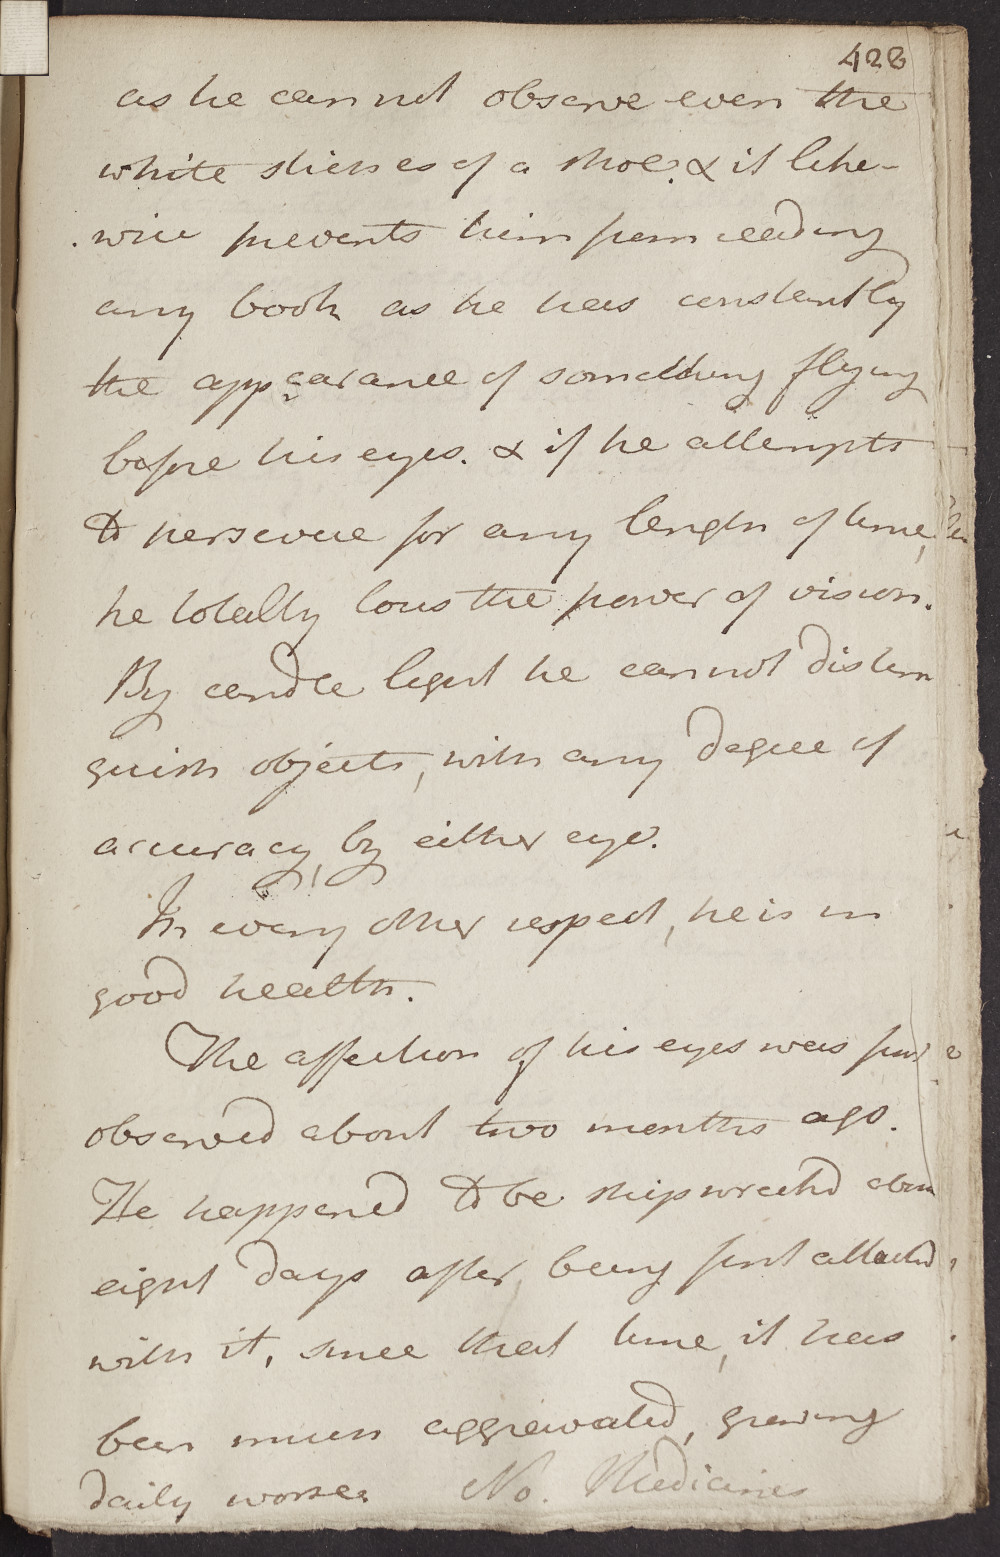 428
as he cannot observe even the
white stiches of a shoe. & it like-
wise prevents him from reading
any book as he has constantly
the appearance of something flying
before his eyes. & if he attempts
to persevere for any length of time,
he totally loses the power of vision.
By candle light he cannot distin
guish objects, with any degree of
accuracy, by either eye.
In every other respect, he is in
good health.
The affection of his eyes was first
observed about two months ago.
He happened to be shipwrecked about
eight days after, being first attacked
with it, since that time, it has
been much aggravated, growing
daily worse. No. Medicines